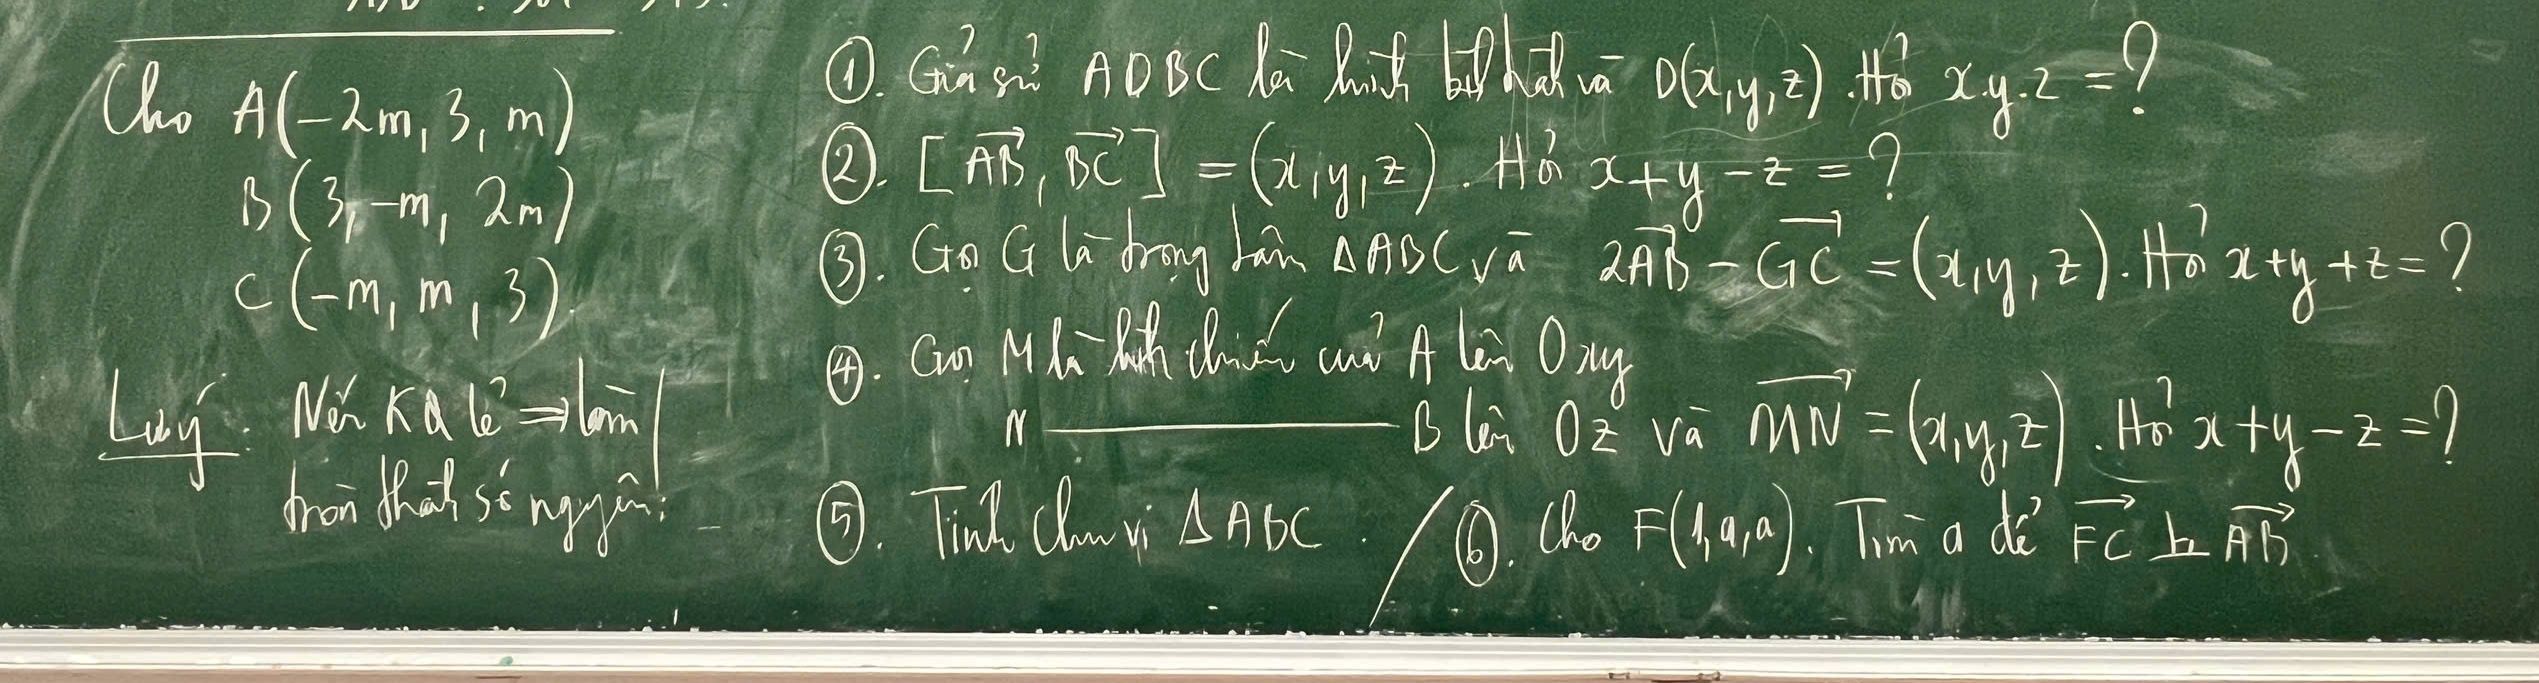 Cho A(-2m, 3, m)
B(3, -m, 2m)
C(-m, m, 3).
Lưu ý: Nếu KQ lẻ => làm
tròn thành số nguyên!
①. Giả sử ADBC là hình bình hành và D(x,y,z). Hỏi x.y.z = ?
②. [AB, BC] = (x,y,z). Hỏi x+y-z = ?
③. Gọi G là trọng tâm ΔABC và 2AB - GC = (x,y,z). Hỏi x+y+z = ?
④. Gọi M là hình chiếu của A lên Oxy
N ——— B lên Oz và MN = (x,y,z). Hỏi x+y-z = ?
⑤. Tính chu vi ΔABC. / ⑥. Cho F(1,a,a). Tìm a để FC ⊥ AB